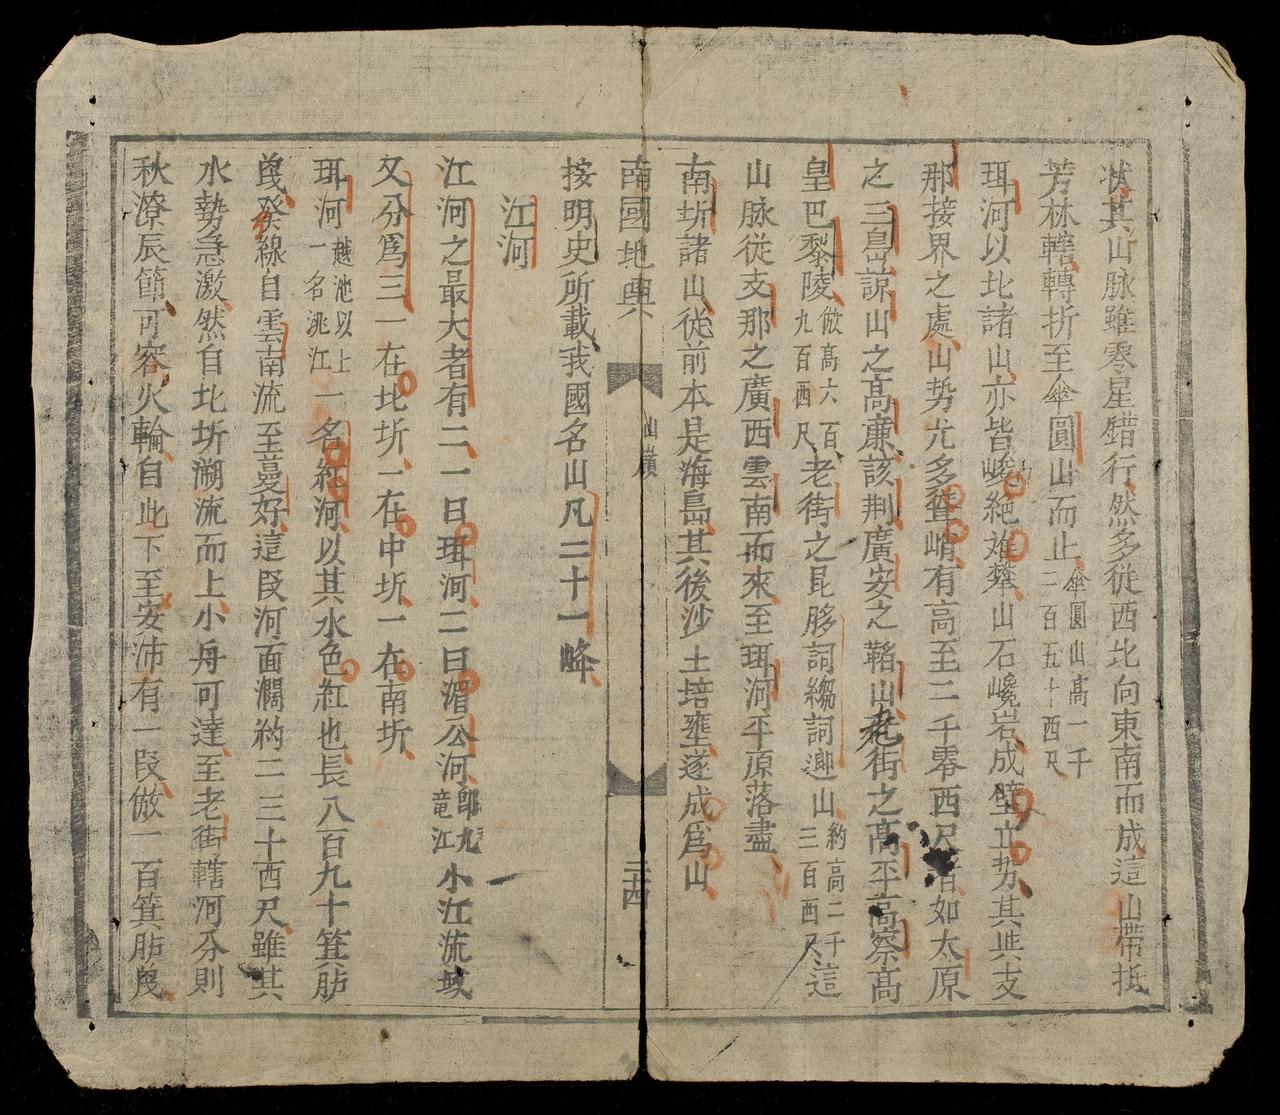 状其山脉雖零星錯行然多從西北向東南而成這山帶抵
芳林轄轉折至傘圓山而止傘圓山高一千二百五十西尺
珥河以北諸山亦皆峻絶难攀山石巉岩成壁立势其與支
那接界之處山势尤多聳峭有高至二千零西尺者如太原
之三島諒山之高廉該荆廣安之鞱山老街之高平高察高
皇巴黎陵倣高六百九百西尺老街之昆胗詞縐詞𨗴山約高二千三百西尺這
山脉從支那之廣西雲南而來至珥河平原落盡
南圻諸山從前本是海島其後沙土培壅遂成爲山
南國地輿 山嶺 三十四
按明史所載我國名山凡二十一峰
江河
江河之最大者有二一曰珥河二曰湄公河即九竜江小江流域
又分爲三一在北圻一在中圻一在南圻
珥河越池以上一名洮江一名紅河以其水色紅也長八百九十箕胪
曵発線自雲南流至蔓好這段河面濶約二三十西尺雖其
水勢急激然自北圻溯流而上小舟可達至老街轄河分則
秋潦辰節可容火輪自此下至安沛有一段倣一百箕胪曵